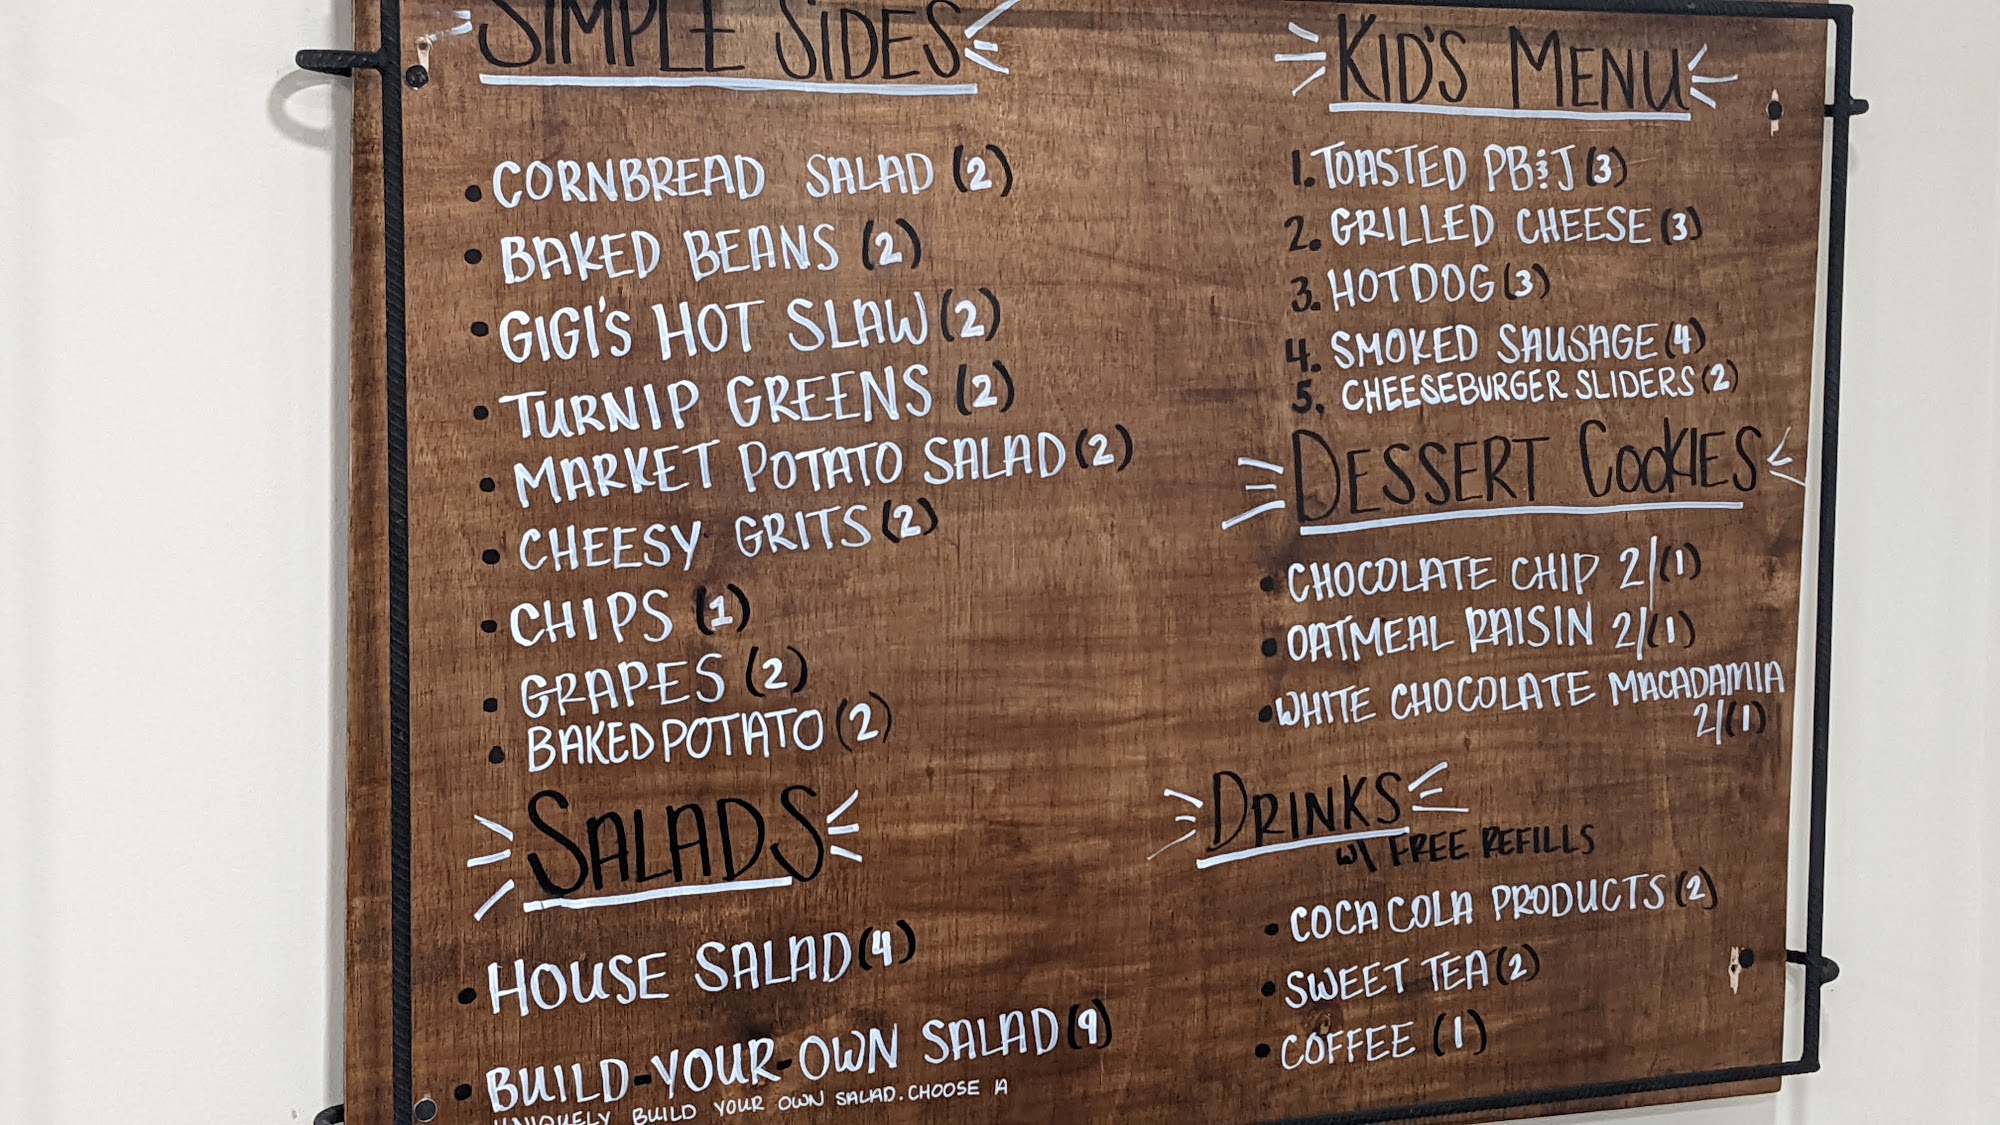 SIMPLE SIDES
• CORNBREAD SALAD (2)
• BAKED BEANS (2)
• GIGI'S HOT SLAW (2)
• TURNIP GREENS (2)
• MARKET POTATO SALAD (2)
• CHEESY GRITS (2)
• CHIPS (1)
• GRAPES (2)
• BAKED POTATO (2)
SALADS
• HOUSE SALAD (4)
• BUILD-YOUR-OWN SALAD (9)
UNIQUELY BUILD YOUR OWN SALAD. CHOOSE A
KID'S MENU
1. TOASTED PB&J (3)
2. GRILLED CHEESE (3)
3. HOTDOG (3)
4. SMOKED SAUSAGE (4)
5. CHEESEBURGER SLIDERS (2)
DESSERT COOKIES
• CHOCOLATE CHIP 2/(1)
• OATMEAL RAISIN 2/(1)
• WHITE CHOCOLATE MACADAMIA
2/(1)
DRINKS
W/ FREE REFILLS
• COCA COLA PRODUCTS (2)
• SWEET TEA (2)
• COFFEE (1)